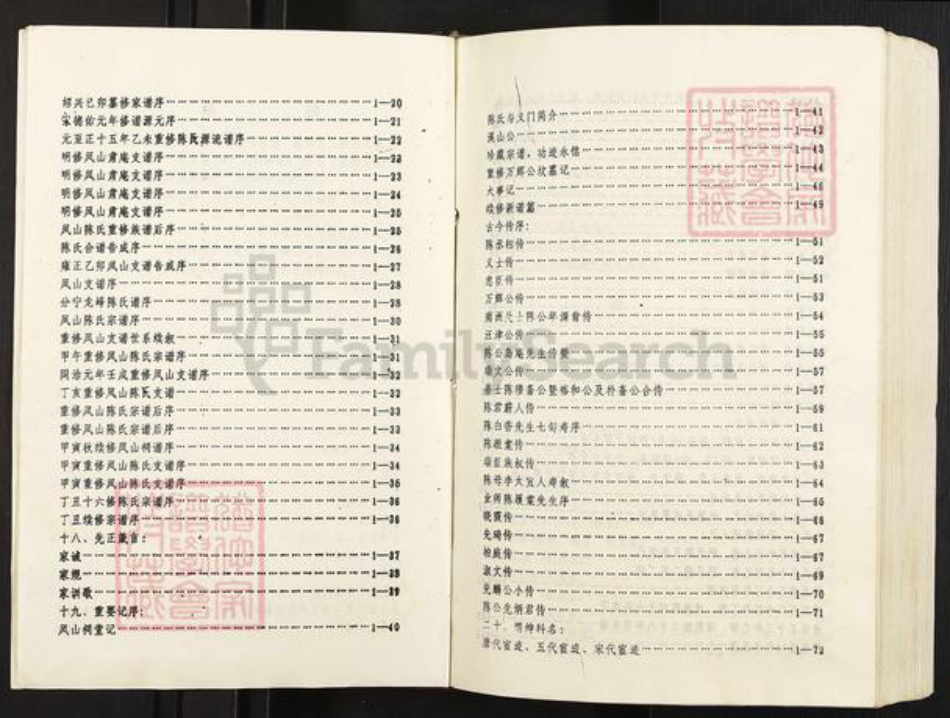 绍兴己卯纂修家谱序 1—20
宋德佑元年修谱源元序 1—21
元至正十五年乙未重修陈氏源流谱序 1—22
明修凤山肃庵支谱序 1—22
明修凤山肃庵支谱序 1—23
明修凤山肃庵支谱序 1—24
明修凤山肃庵支谱序 1—25
凤山陈氏重修族谱后序 1—25
陈氏合谱告成序 1—26
雍正乙卯凤山支谱告成序 1—27
凤山支谱序 1—28
分宁龙峰陈氏谱序 1—28
凤山陈氏宗谱序 1—30
重修凤山支谱世系续叙 1—31
甲午重修凤山陈氏宗谱序 1—31
同治元年壬戌重修凤山支谱序 1—32
丁亥重修凤山陈氏支谱 1—32
重修凤山陈氏宗谱后序 1—33
重修凤山陈氏宗谱后序 1—33
甲寅秋续修凤山祠谱序 1—34
甲寅重修凤山陈氏支谱序 1—34
甲寅重修凤山陈氏支谱序 1—35
丁丑十六修陈氏宗谱序 1—36
丁丑续修宗谱序 1—36
十八、先正箴言：
家诫 1—37
家规 1—38
家训歌 1—39
十九、重要记序：
凤山祠堂记 1—40
陈氏与义门简介 1—41
溪山公 1—42
珍藏宗谱，功迹永铭 1—43
重修万卿公坟墓记 1—44
大事记 1—46
续修新谱篇 1—49
古今传序：
陈丞相传 1—51
义士传 1—52
忠臣传 1—51
万卿公传 1—53
陈公年调翁传 1—54
豆津公传 1—55
陈公勋庵先生传赞 1—55
瑞文公传 1—57
善士陈穆斋公暨裕和公及朴斋公合传 1—57
陈君蔚人传 1—59
陈白香先生七旬寿序 1—61
陈概棠传 1—62
瑞臣族权传 1—63
陈母李大宜人寿叙 1—64
业师陈履棠先生序 1—65
晓霞传 1—66
先琦传 1—67
柏苑传 1—67
淑文传 1—69
光麟公小传 1—70
陈公先炳君传 1—71
二十、明绅科名：
唐代宦迹、五代宦迹、宋代宦迹 1—72
FamilySearch